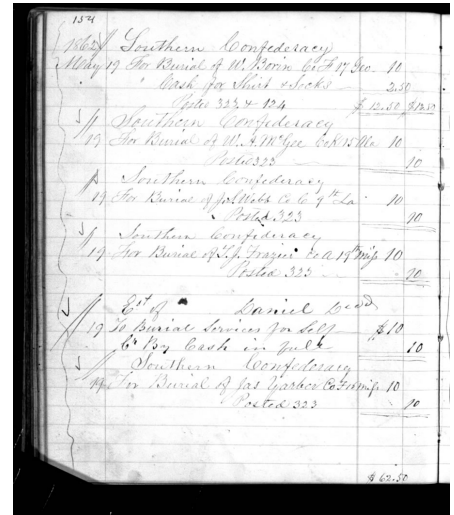 154
1862 Southern Confederacy
May 19 For Burial of W. Borin Co F 17 Geo. 10
" Cash for Shirt & Socks 2.50
Posted 323 & 124 $12.50 $12.50
Southern Confederacy
19 For Burial of W. A. McGee Co K 15 Ala 10
Posted 323 10
Southern Confederacy
19 For Burial of Webb Co C 9th La 10
Posted 323 10
Southern Confederacy
19 For Burial of T. J. Frazier Co A 19th Miss 10
Posted 323 10
Est of Daniel Decd
19 To Burial Services for Self $10
Cr By Cash in full 10
Southern Confederacy
19 For Burial of Jas Yarbor Co F Miss 10
Posted 323 10
$62.50